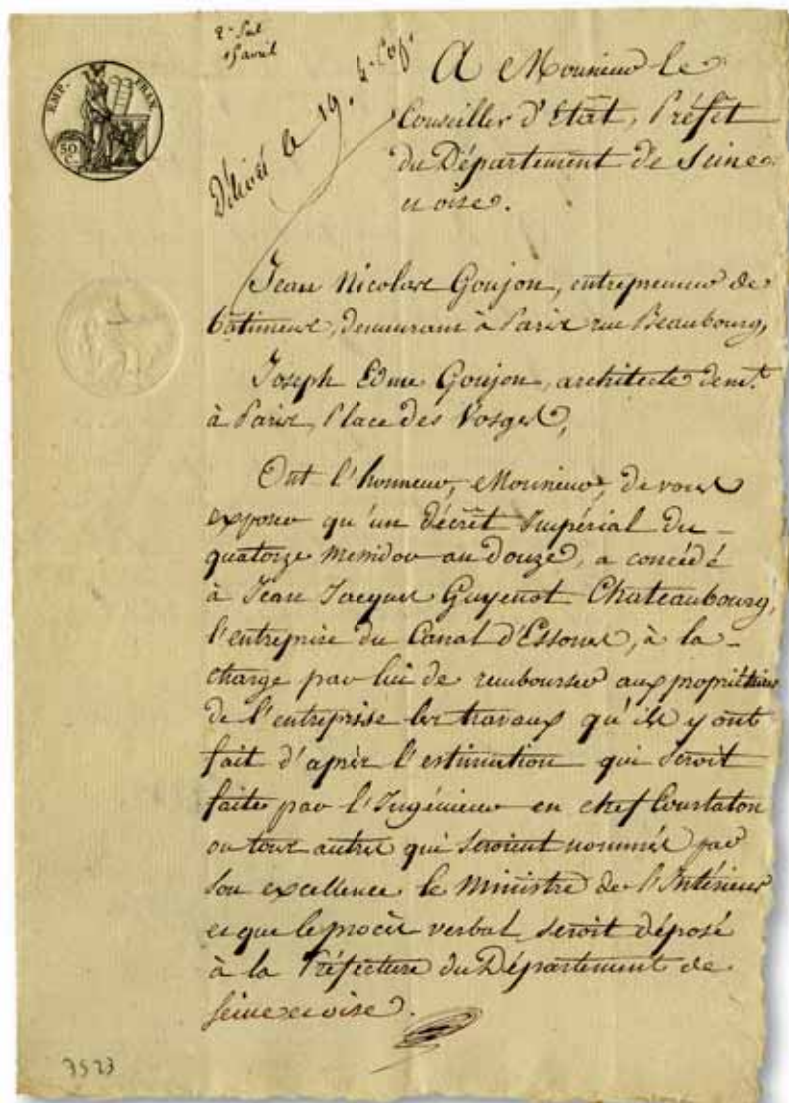 EMP. FRAN.
50 C.
15 avril
Délivré le 19.
A Monsieur le
Conseiller d'Etat, Préfet
du Département de Seine
et oise.
Jean Nicolas Goujon, entrepreneur de
bâtimens, demeurant à Paris rue Beaubourg,
Joseph Edme Goujon, architecte demt.
à Paris, Place des Vosges,
Ont l'honneur, Monsieur, de vous
exposer qu'un Décret Impérial du -
quatorze Messidor an Douze, a concédé
à Jean Jacques Guyenot Chateaubourg,
l'entreprise du Canal d'Essones, à la -
charge par lui de rembourser aux propriétaires
de l'entreprise les travaux qu'ils y ont
fait d'après l'estimation qui seroit
faite par l'Ingénieur en chef
ou tous autres qui seroient nommés par
son excellence le Ministre de l'Intérieur
et que le procès verbal seroit déposé
à la Préfecture du Département de
Seine et oise.
3523